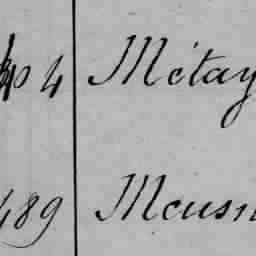 4 Métay
489 Meusn